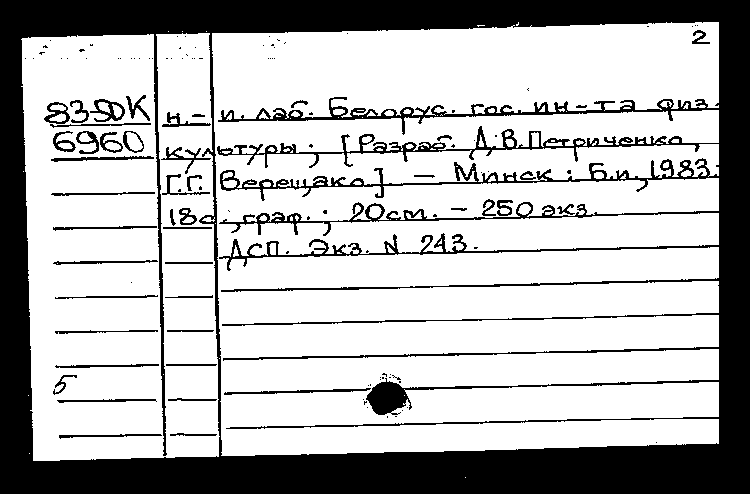 2
83-50К н.- и. лаб. Белорус. гос. ин-та физ.
6960 культуры; [Разраб. Д.В. Петриченко,
Г.Г. Верещако] - Минск: Б.и., 1983.
18с., граф.; 20см. - 250 экз.
ДСП. Экз. N 243.
5